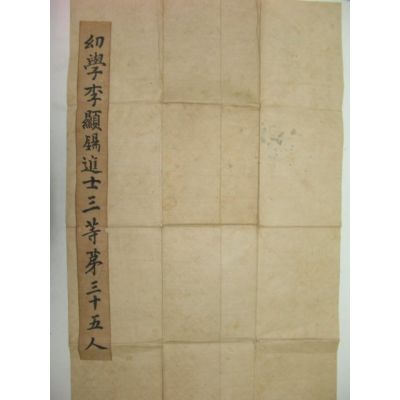 幼學李顯錫進士三等第三十五人